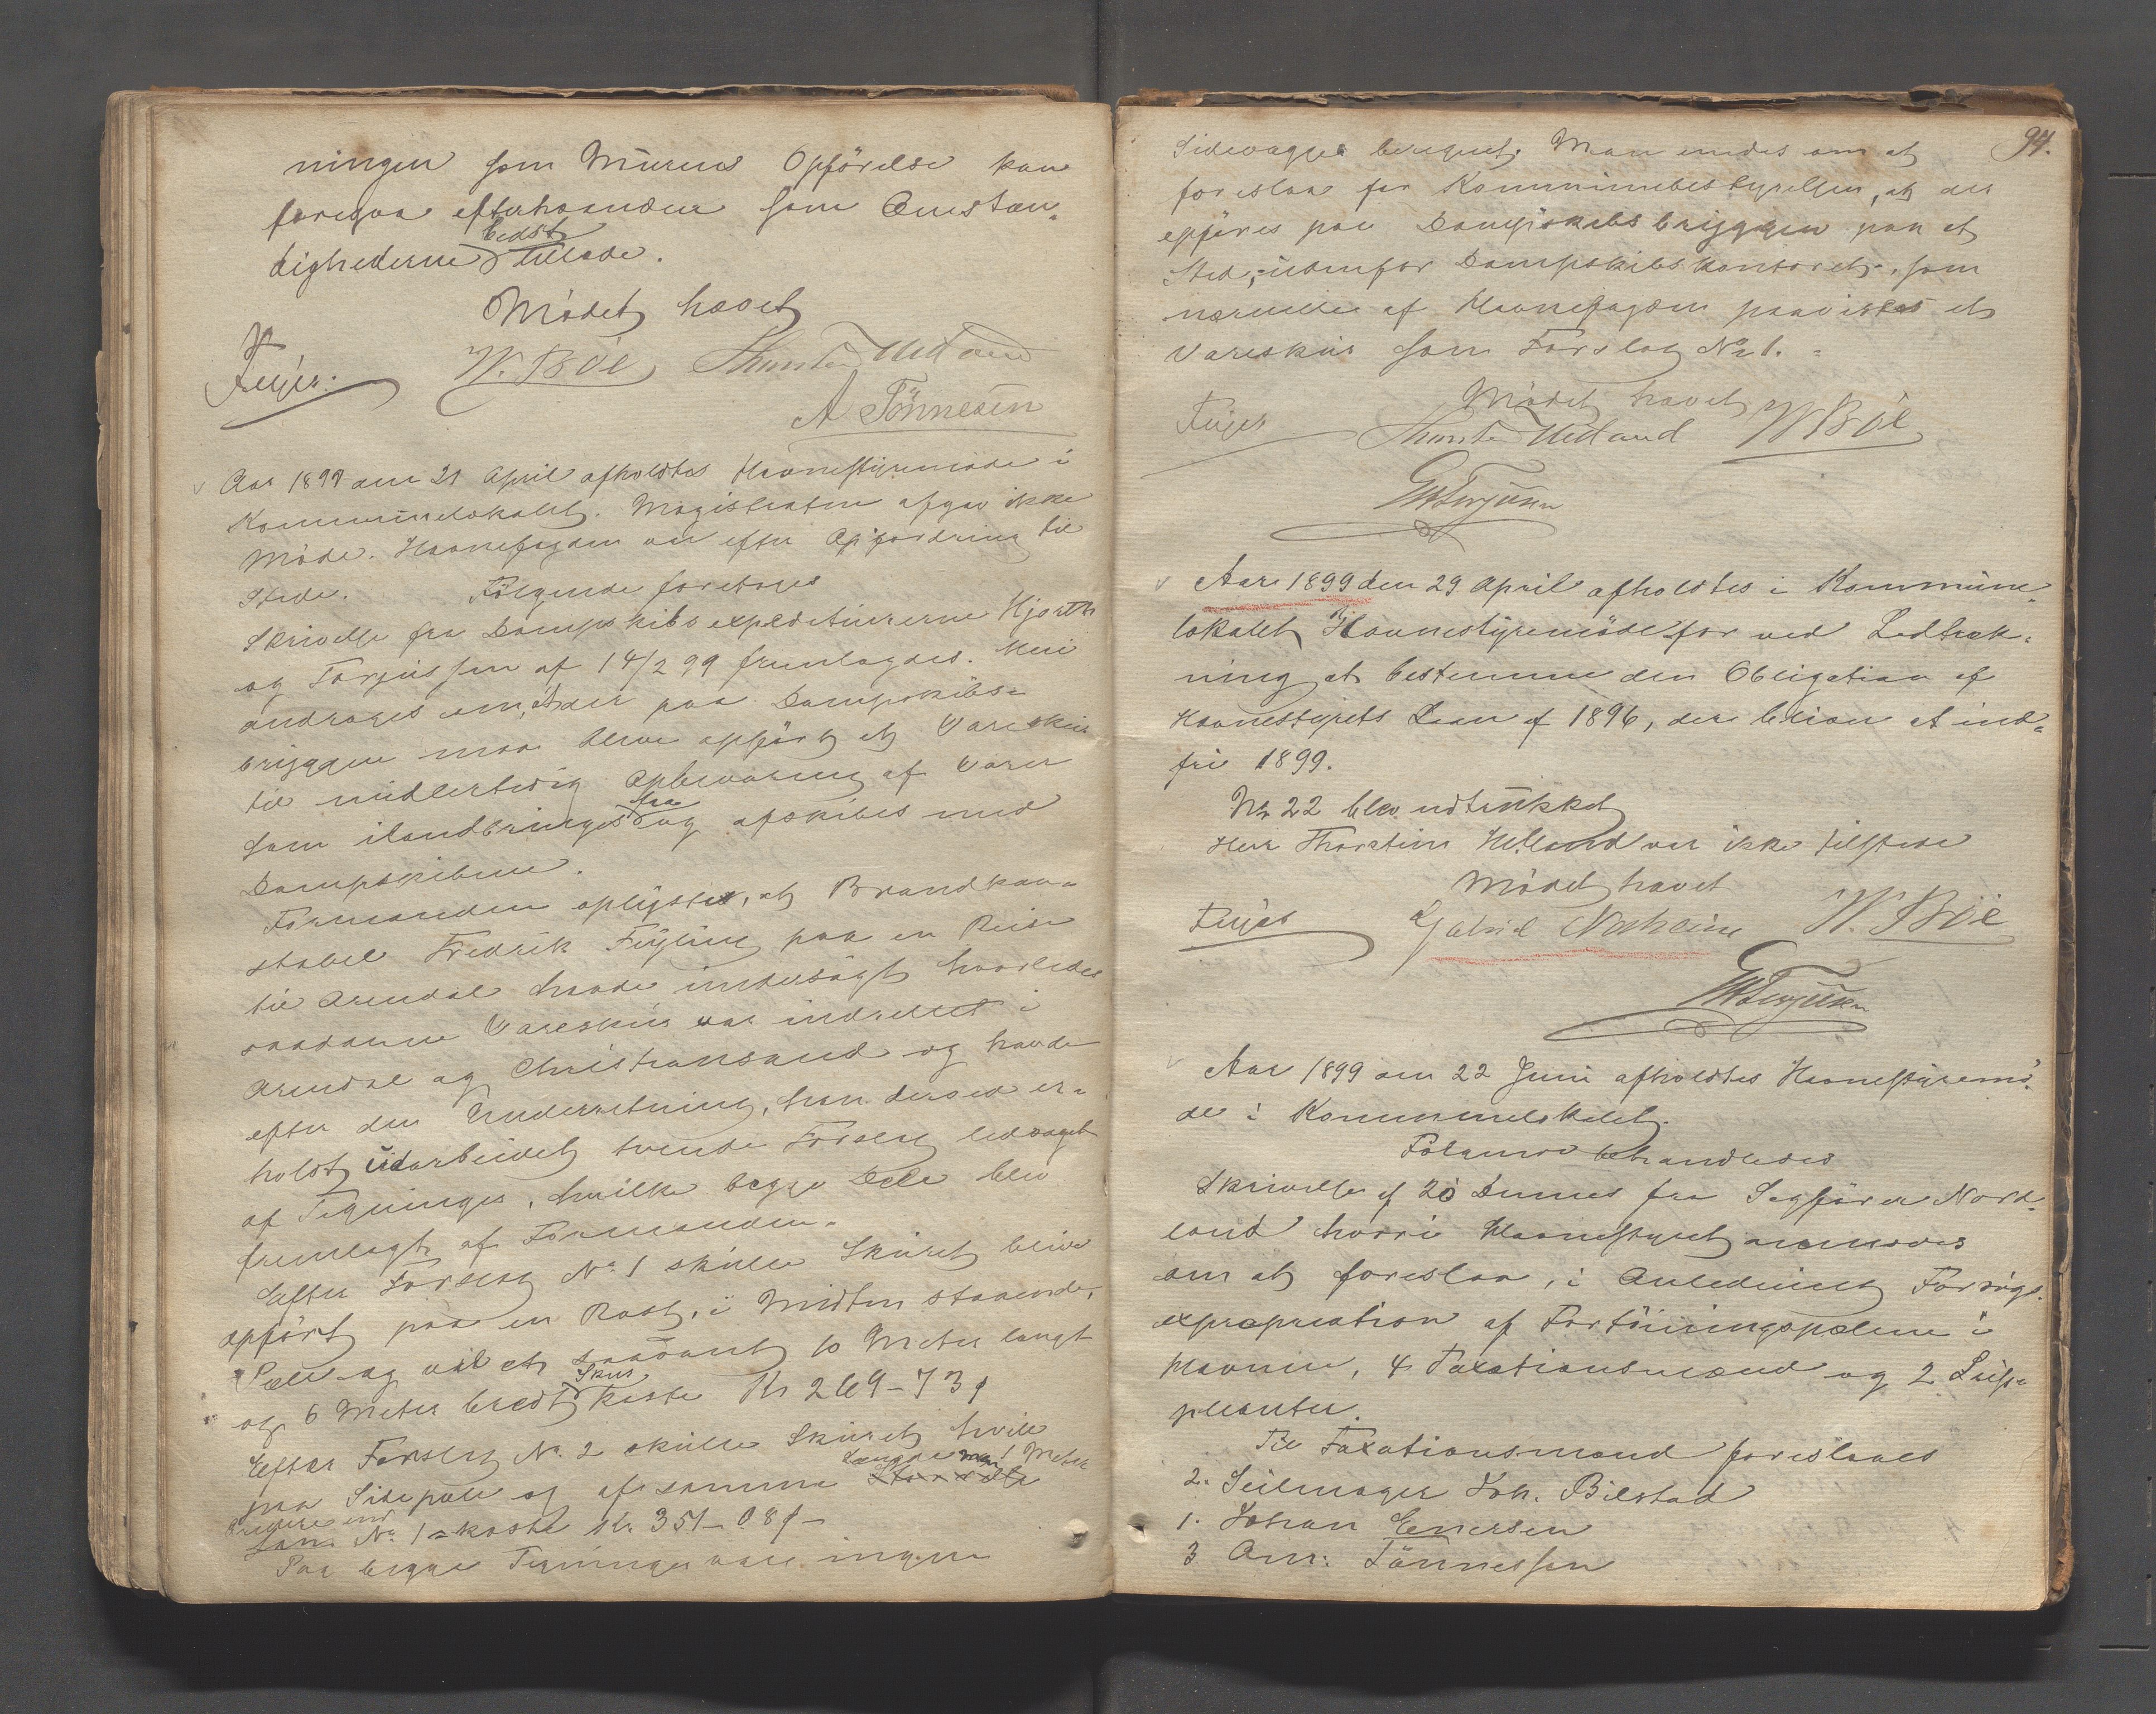 ningen som Murens Opförelse kan
foregaa efterhaanden som Omstæn-
bedst
dighederne tillade.
Mödet hævet
Feyer. W. Böe Thorstein Helland
A Tönnesen
Aar 1899 den 21 April afholdtes Havnestyremöde i
Kommunelokalet. Magistraten afgav ikke
Möde. Havnefogden var efter Opfordring til
Stede. Fölgende foretoges
Skrivelse fra Dampskibsexpeditörerne Hjorth
og Torjussen af 14/2 99 fremlagdes. Heri
androges om, at der paa Dampskibs-
bryggen maa blive opfört et Vareskur
til midlertidig Opbevaring af Varer
fra
som ilandbringes og afskibes med
Dampskibene.
Formanden oplyste, at Brandkon-
stabel Fredrik Fugling paa en Reise
til Arendal havde undersögt hvorledes
saadanne Vareskur var indrettet i
Arendal og Christiansand og havde
efter den Underretning, han derved er-
holdt udarbeidet tvende Forslag ledsaget
af Tegninger, hvilke begge Dele blev
fremlagt af Formanden.
Efter Forslag No 1 skulle Skuret blive
opfört paa en Rad, i Midten staaende,
Pæle og vil et saadant 10 Meter langt
Skur
og 6 Meter bredt koste Kr 269-73 ø
Efter Forslag No 2 skulle Skuret hvile
Længde men 1 Meter
paa Sidepæle og af samme Störrelse
bredere end
som No 1 koste Kr. 351-08 ø-
Paa begge Tegninger vare ingen
94.
Sidevægge beregnet. Man enedes om at
foreslaa for Kommunebestyrelsen, at der
opföres paa Dampskibsbryggen paa et
Sted, udenfor Dampskibskontoret, som
nærmere af Havnefogden paavises et
Vareskur som Forslag No 1.
Mödet hævet
Feyer Thorstein Helland W Böe
GM Torjusen
Aar 1899 den 29 April afholdtes i Kommune-
lokalet Havnestyremöde for ved Lodtræk-
ning at bestemme den Obligation af
Havnestyrets Laan af 1896, der bliver at ind-
fri 1899.
Nr 22 blev udtrukket
Herr Thorstein Helland var ikke tilstede
Mödet hævet
Feyer Gabriel Nodheim W. Böe
GM Torjusen
Aar 1899 den 22 Juni afholdtes Havnestyremö-
de i Kommunelokalet.
Fölgende behandledes
Skrivelse af 20 Dennes fra Sagförer Nord-
land hvori Havnestyret anmodes
om at foreslaa, i Anledning Forsögs-
expropriation af Fortöiningspælene i
Havnen, 4 Taxationsmænd og 2 Sup-
pleanter.
Til Taxationsmænd foreslaaes
2. Seilmager Joh. Bilstad
1. Johan Enersen
3 Om: Tönnessen